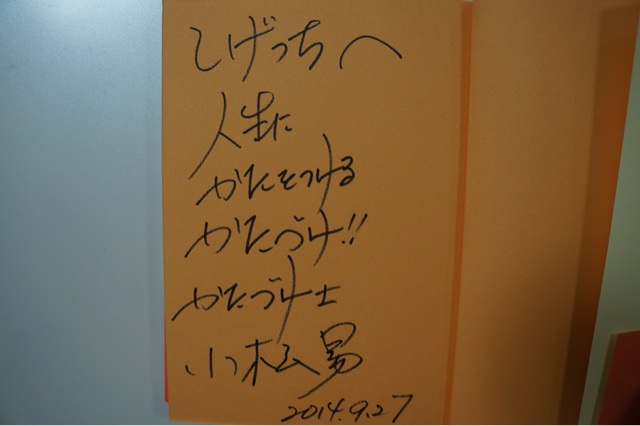 しげっちへ
人生に
かたをつける
かたづけ!!
かたづけ士
小松易
2014.9.27